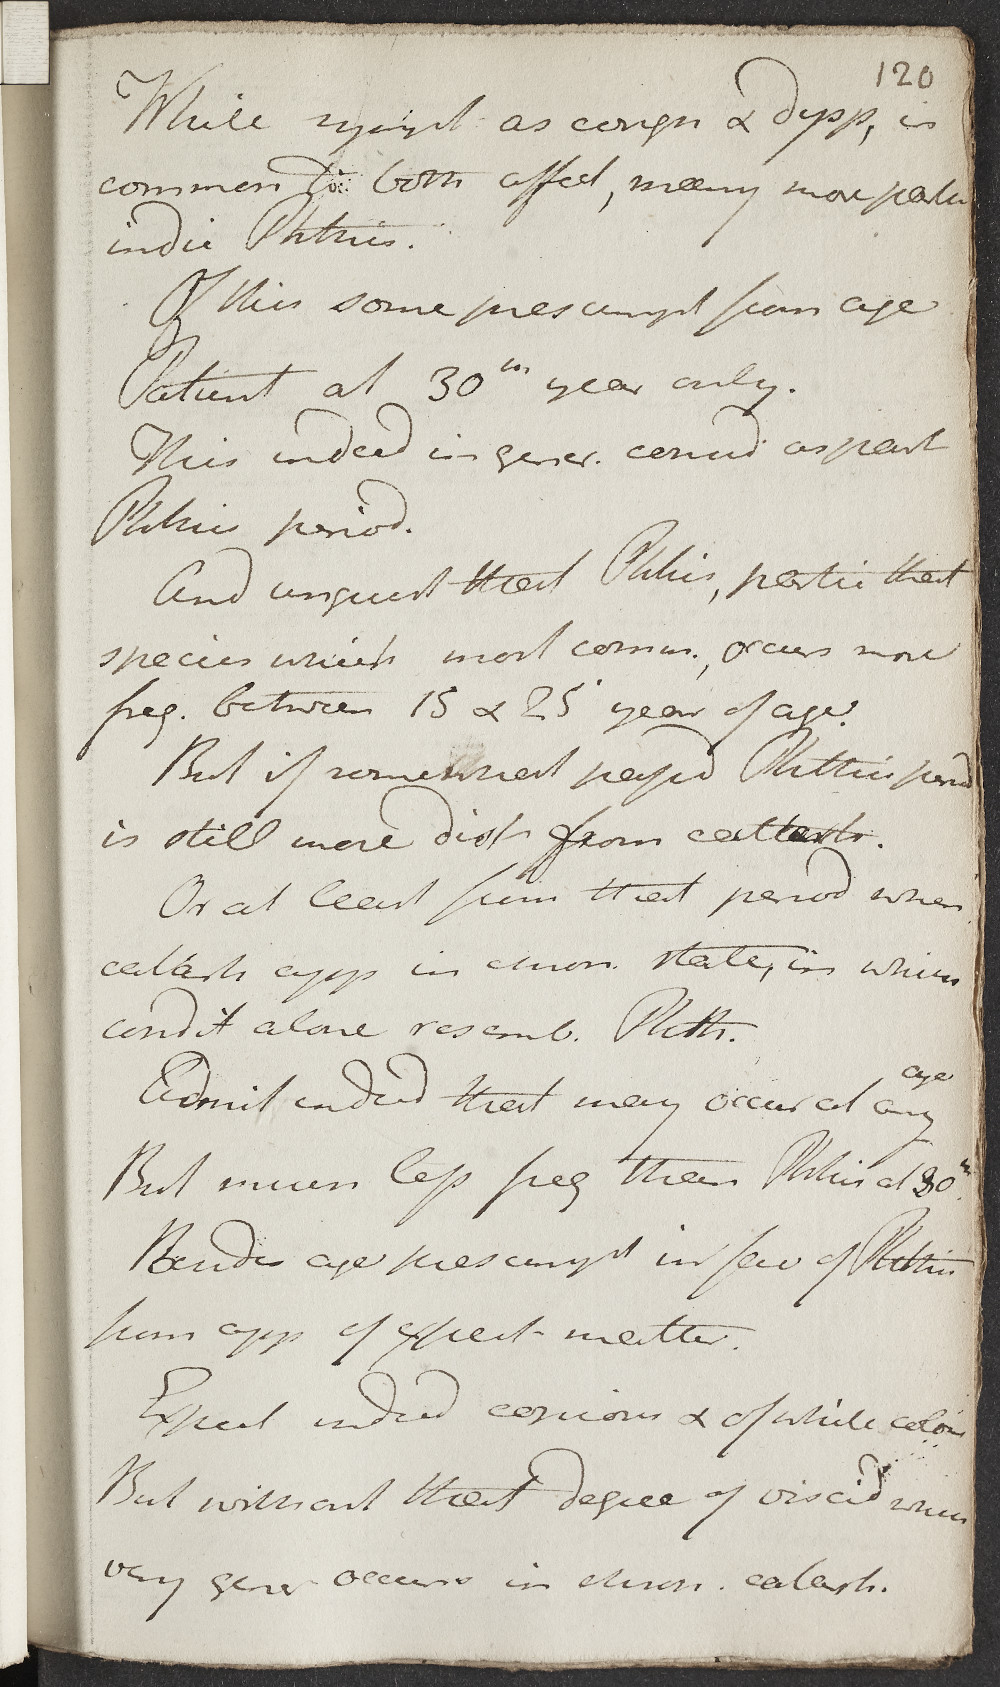 120
While sympt as cough & dysp, is
common to both affect, many more partic
indic Phthis.
Of this some presumpt from age
Patient at 30th year only.
This indeed in gener. consid as past
Phthis period.
And unquest that Phthis, partic that
species which most comm., occurs more
freq. between 15 & 25 year of age.
But if somewhat passed Phthis period
is still more dist from cattarh.
Or at least from that period when
catarh app in chron. state, in which
condit alone resemb. Phth.
Admit indeed that may occur at any age
But much less freq than Phthis at 30th.
Besides age presumpt in fav of Phthis
from app of expect matter.
Expect indeed copious & of white colour
But without that degree of viscid which
very gener occurs in chron. catarh.